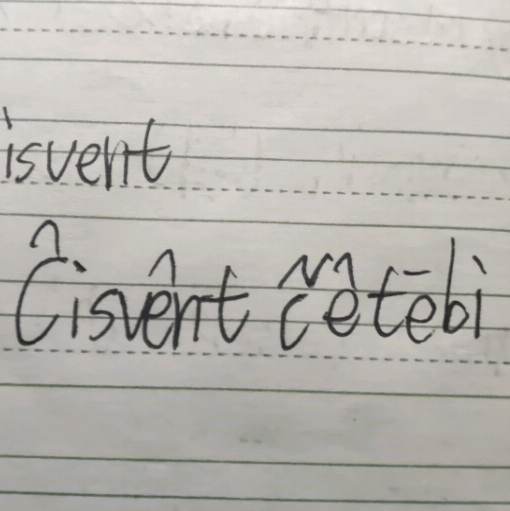 isvent
Ĉisvênt čêtēbì